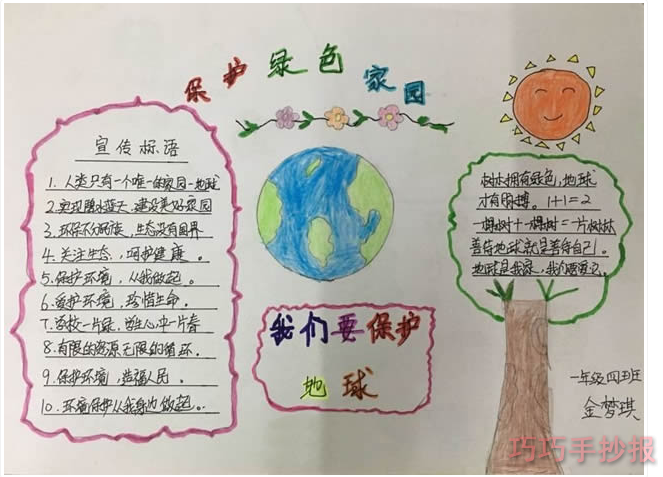 保护绿色家园
宣传标语
1. 人类只有一个唯一的家园—地球
2. 实现碧水蓝天，建设美好家园
3. 环保不分民族，生态没有国界
4. 关注生态，呵护健康。
5. 保护环境，从我做起。
6. 爱护环境，珍惜生命。
7. 学校一片绿，唯心中一片春
8. 有限的资源无限的循环。
9. 保护环境，造福人民。
10. 环境保护从我身边做起。
我们要保护
地球
树木拥有绿色，地球
才有脉搏。1+1=2
一棵树+一棵树=一片树林
善待地球就是善待自己。
地球是我家，我们要爱它。
一年级四班
金梦琪
巧巧手抄报